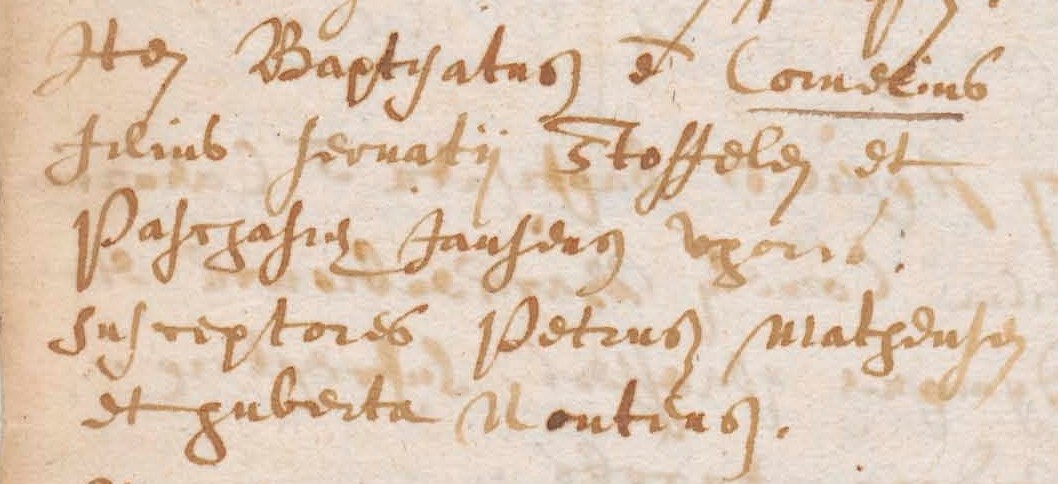 Item Baptisatus ē Cornelius
filius Servatij Stoffelen et
Paschasie Jansens uxoris.
susceptores Petrus Matheusen
et huberta Noutens.